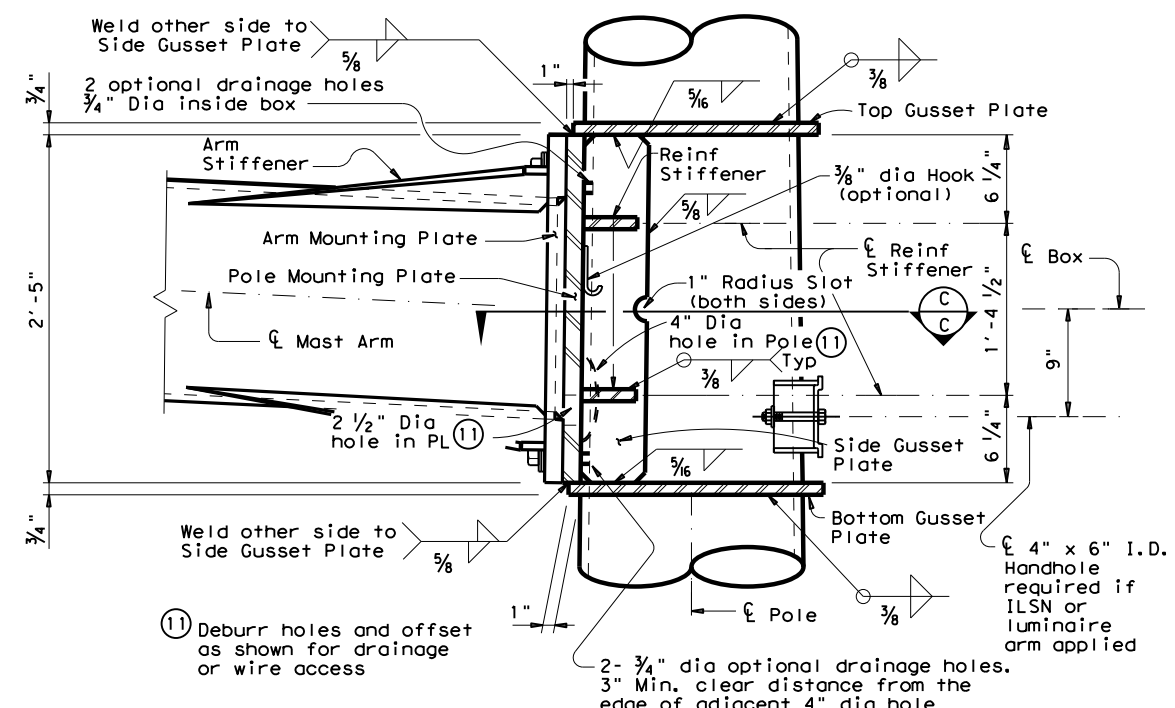 Weld other side to
Side Gusset Plate
5/8
2 optional drainage holes
3/4" Dia inside box
3/4"
1"
5/16
3/8
Top Gusset Plate
Arm
Stiffener
Reinf
Stiffener
3/8" dia Hook
(optional)
5/8
6 1/4"
Arm Mounting Plate
Pole Mounting Plate
℄ Reinf
Stiffener
℄ Box
1" Radius Slot
(both sides)
C
C
2'-5"
℄ Mast Arm
4" Dia
hole in Pole 11
Typ
3/8
1'-4 1/2"
9"
2 1/2" Dia
hole in PL 11
Side Gusset
Plate
5/16
6 1/4"
3/4"
Weld other side to
Side Gusset Plate
5/8
Bottom Gusset
Plate
℄ 4" x 6" I.D.
Handhole
required if
ILSN or
luminaire
arm applied
3/8
1"
℄ Pole
11 Deburr holes and offset
as shown for drainage
or wire access
2- 3/4" dia optional drainage holes.
3" Min. clear distance from the
edge of adjacent 4" dia hole